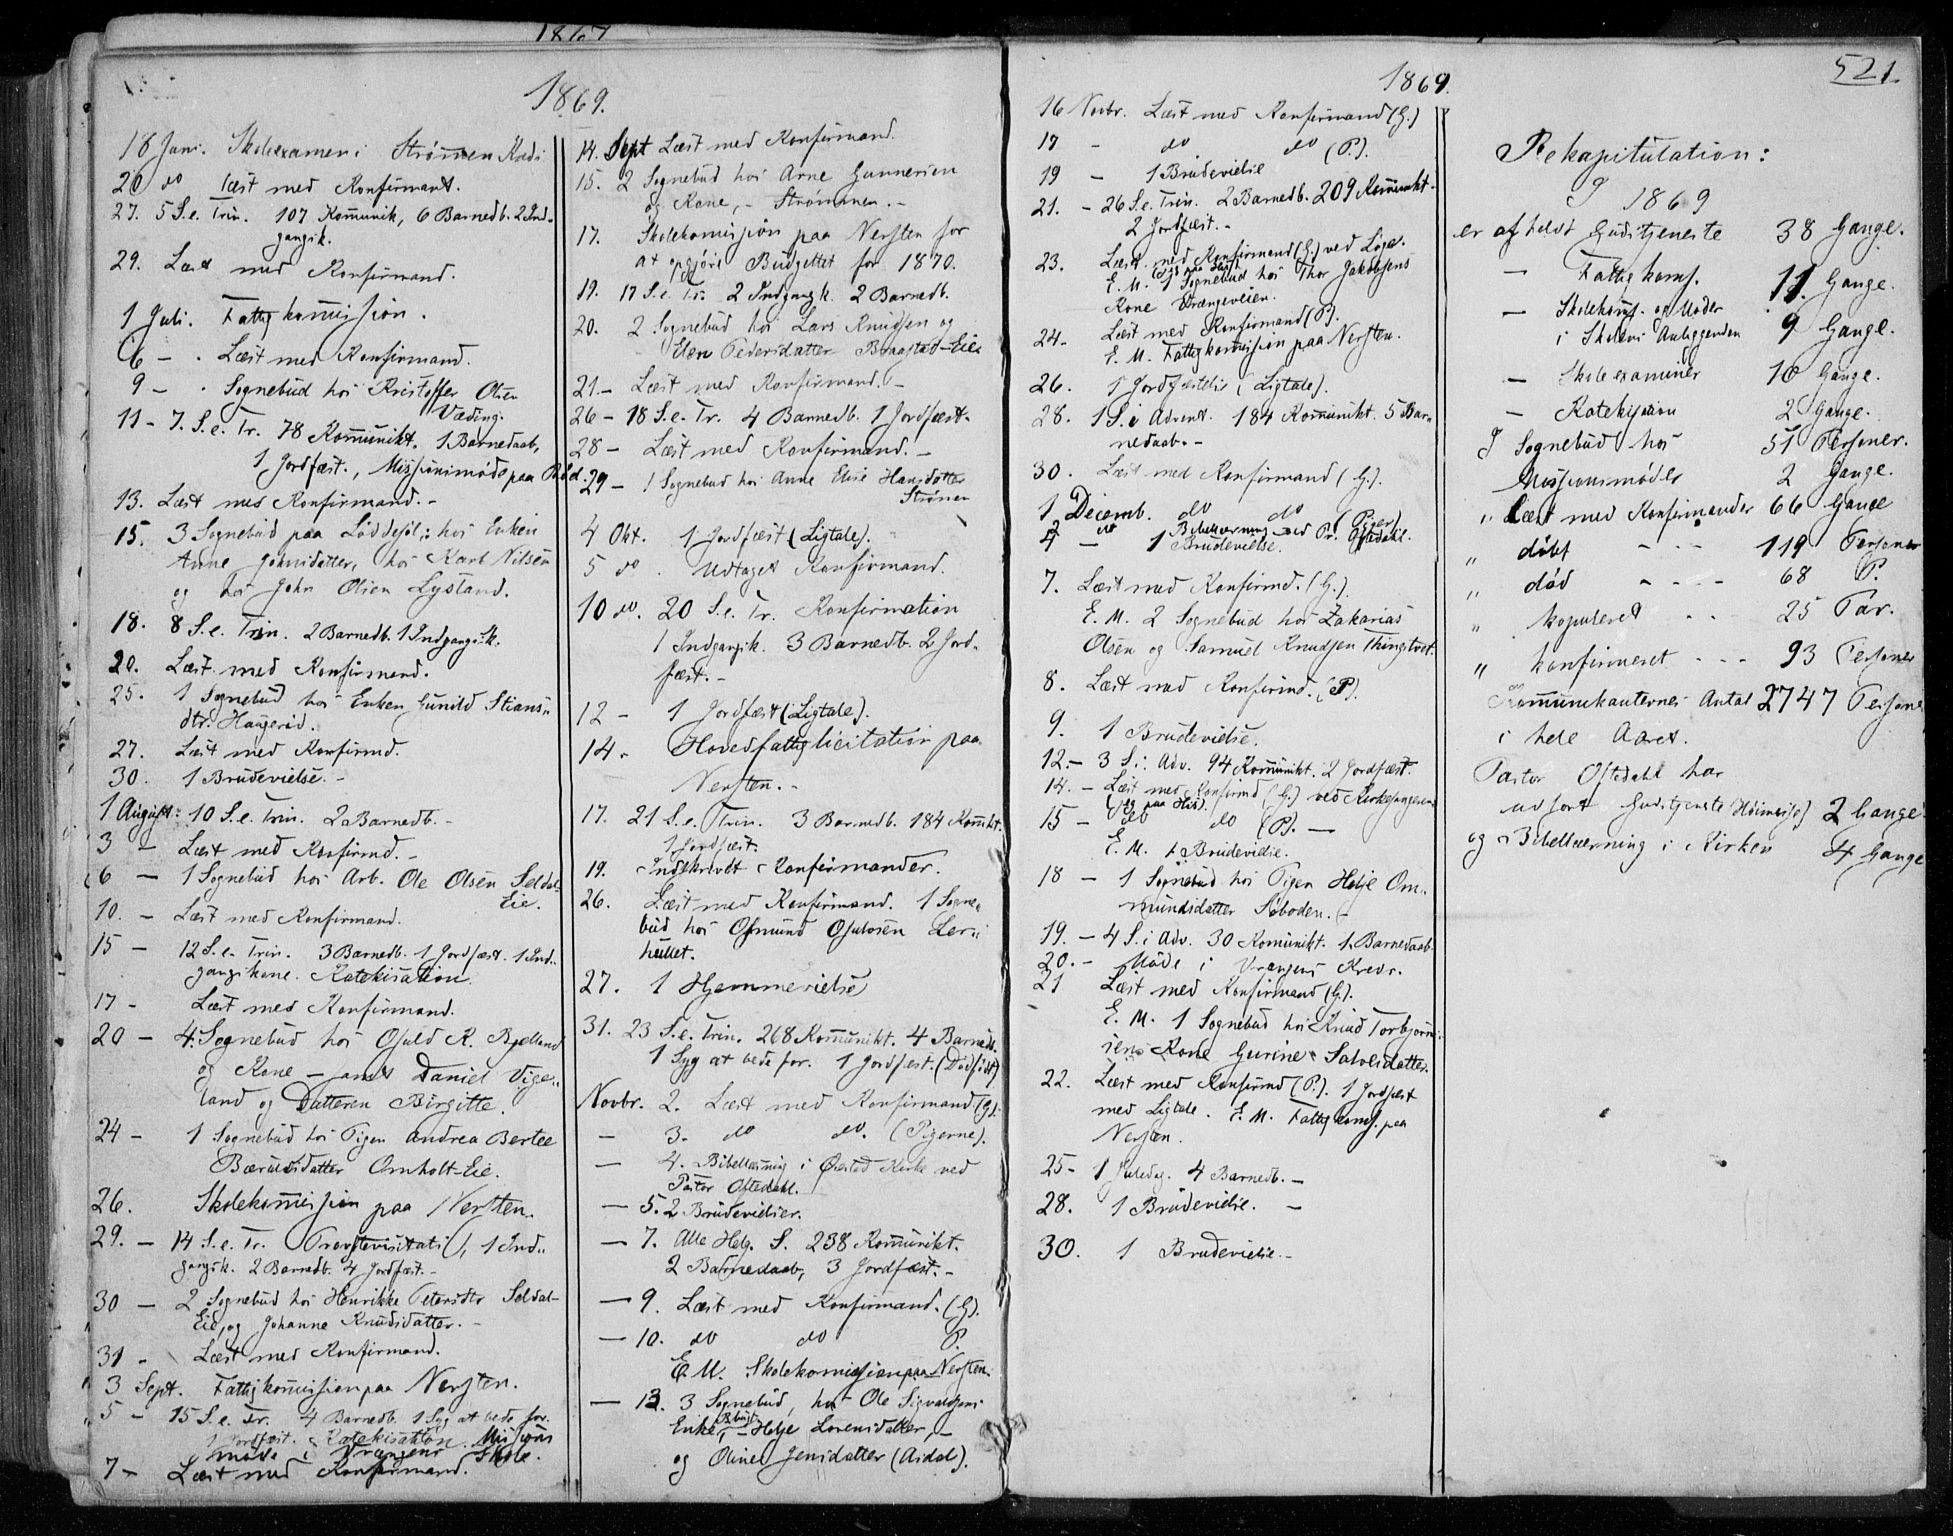 1867
1869.
18 Juni. Skoleexamen i Strømmen Kreds
20 do Læst med Konfirmant.
27. 5 S. e. Trin. 107 Kommunik, 6 Barnedb. 2 Ind-
gangsk.
29. Læst med Konfirmand.
1 Juli. Fattigkommission.
6 - . Læst med Konfirmand.
9 - . Sognebud hos Kristoffer Olsen
Væding.
11 - 7. S. e. Tr. 78 Kommunikt. 1 Barnedaab,
1 Jordfæst., Missionsmøde paa
13. Læst med Konfirmand. -
15. 3 Sognebud paa Løddesøl: hos Enken
Anne Johnsdatter, hos Karl Nilsen
og hos John Olsen Lystand.
18. 8 S. e. Trin. 2 Barnedb. 1 Indgangsk.
20. Læst med Konfirmand.
25. 1 Sognebud hos Enken Gunild Stians-
dtr. Haugerid.
27. Læst med Konfirmd.
30. 1 Brudevielse. -
1 August: 10 S. e. Trin. 2 Barnedb. -
3 - Læst med Konfirmd. -
6 - 1 Sognebud hos Arb. Ole Olsen Seldal
Eie.
10. - Læst med Konfirmand.
15 - 12 S. e. Trin. 3 Barnedb. 1 Jordfæst. 1 Ind-
gangskone. Katekisation.
17 - Læst med Konfirmand.
20 - 4. Sognebud hos Osuld K. Bjelland
og Kone - samt Daniel Vige-
land og Datteren Birgitte.
24 - 1 Sognebud hos Pigen Andrea Bertee
Bærulsdatter Omholt-Eie.
26. Skolekommission paa Nersten.
29. - 14 S. e. Tr. Provstevisitats, 1 Ind-
gangsk. 2 Barnedb. 4 Jordfæst. -
30 - 2 Sognebud hos Henrikke Petersdtr Seldal-
Eie, og Johanne Knudsdatter. -
31 - Læst med Konfirmand.
3 Sept. Fattigkommission paa Nersten.
5 - 15 S. e. Tr. 4 Barnedb. 1 Syg at bede for.
1 Jordfæst. Katekisation. Missions
møde i Vrængens Skole.
7 - Læst med Konfirmand.
14. Sept Læst med Konfirmand.
15. 2 Sognebud hos Arne Gunnersen
og Kone, - Strømmen. -
17. Skolekommission paa Nersten for
at opgjøre Budgettet for 1870.
19. 17 S. e. Tr. 2 Indgangk. 2 Barnedb.
20. 2 Sognebud hos Lars Knudsen og
Elen Pedersdatter Braastad-Eie
21 - Læst med Konfirmand. -
26 - 18 S. e. Tr. 4 Barnedb. 1 Jordfæst-
28 - Læst med Konfirmand. -
29 - 1 Sognebud hos Anne Elise Hansdatter
Strømen
4 Okt. 1 Jordfæst (Ligtale).
5 do . Udtaget Konfirmand.
10 do. 20 S. e. Tr. Konfirmation
1 Indgangsk. 3 Barnedb. 2 Jord-
fæst. -
12 - 1 Jordfæst (Ligtale).
14 - Hovedfattiglicitation paa
Nersten. -
17. 21 S. e. Trin. 3 Barnedb. 184 Komkt.
1 Jordfæst.
19. Indskrevet Konfirmander.
26. Læst med Konfirmand. 1 Sogne-
bud hos Osmund Osulvsen Ler-
hullet.
27. 1 Hjemmevielse
31. 23 S. e. Trin. 268 Kommunikt. 4 Barnedb.
1 Syg at bede for. 1 Jordfæst. (Dødfødt)
Novbr. 2. Læst med Konfirmand (G).
- 3. do do. (Pigerne).
- 4. Bibellæsning i Øiestad Kirke ved
Pastor Oftedahl.
- 5. 2 Brudevielser.
- 7. Alle Helg. S. 238 Kommunikt.
2 Barnedaab, 3 Jordfæst. -
- 9. Læst med Konfirmand. (G).
- 10. do do P.
E. M. Skolekommission paa Nersten.
- 13. 3 Sognebud, hos Ole Sigvaldsens
Enke, - Helje Lorensdatter, -
og Oline Jensdatter (Asdal).
1869.
521.
16 Novbr. Læst med Konfirmand (G.)
17 - do do (P.).
19 - 1 Brudevielse
21. - 26 S. e. Trin. 2 Barnedb. 209 Kommunkt-
2 Jordfæst. -
23. Læst med Konfirmand (G.) ved Lige.
(Jeg paa His)
E. M. 1 Sognebud hos Thor Jakobsens
Kone Vrængeveien.
24 - Læst med Konfirmand (P).
E. M. Fattigkommission paa Nersten.
26. 1 Jordfæstelse (Ligtale).
28. 1 S. i Advent. 184 Komunikt. 5 Bar-
nedaab. -
30. Læst med Konfirmand (G.).
1 Decemb. do do (Piger)
2 do Bibellæsning ved Pr. Oftedahl.
4 - 1 Brudevielse.
7. Læst med Konfirmd. (G.).
E. M. 2 Sognebud hos Zakarias
Olsen og Samuel Knudsen Thingstvet.
8. Læst med Konfirmd. (P).
9. 1 Brudevielse.
12. - 3 S. i. Adv. 94 Kommunikt. 2 Jordfæst.
14. - Læst med Konfirmd (G.) ved Kirkesangeren
(Jeg paa His).
15 - do do (P). -
E. M. 1 Brudevielse.
18 - 1 Sognebud hos Pigen Helje Om-
mundsdatter Søboden. -
19. - 4 S. i Adv. 30 Komunikt. 1 Barnedaab
20. - Møde i Vrængens Kreds.
21 Læst med Konfirmand (G).
E. M. 1 Sognebud hos Knud Torbjørn-
sens Kone Gurine Salvesdatter.
22. Læst med Konfirmd (P.). 1 Jordfæst
med Ligtale. E. M. Fattigkoms. paa
Nersten.
25 - 1 Juledag. 4 Barnedb. -
28. 1 Brudevielse. -
30. 1 Brudevielse. -
Rekapitulation:
I 1869
er afholdt Gudstjeneste 38 Gange.
- Fattigkoms. 11. Gange.
- Skolekoms. og Møder
i Skolens Anliggender 9 Gange.
- Skoleexaminer 10 Gange.
- Katekisation 2 Gange.
I Sognebud hos 51 Personer.
Missionsmøder 2 Gange.
" Læst med Konfirmander 66 Gange
" døbt - - - 119 Personer
" død - - - - 68 P.
" kopuleret - - - 25 Par.
" konfirmeret - - - 93 Personer
Kommunikanternes Antal 2747 Personer
i hele Aaret.
Pastor Oftedahl har
udført Gudstjeneste 2 Gange
og Bibellæsning i Kirken 4 Gange